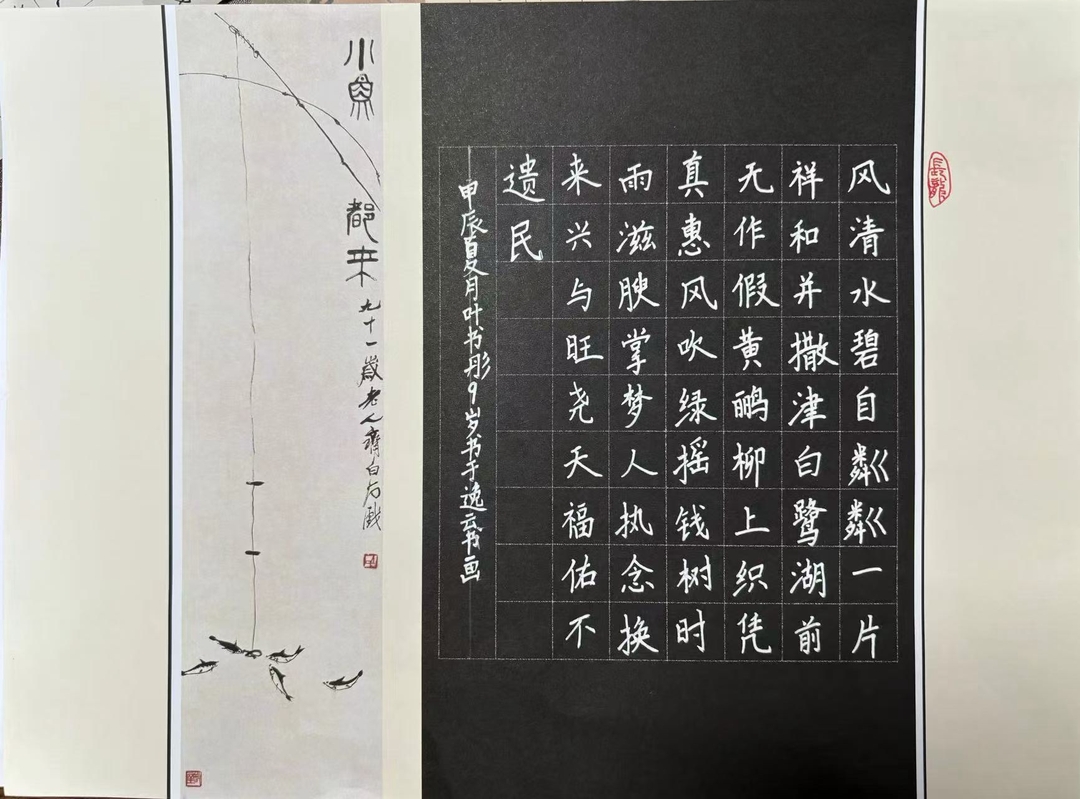 長龍
风清水碧自粼粼一片
祥和并撒津白鹭湖前
无作假黄鹂柳上织凭
真惠风吹绿摇钱树时
雨滋腴掌梦人执念换
来兴与旺尧天福佑不
遗民
甲辰夏月叶书彤9岁书于逸云书画
小魚都来
九十一歲老人齊白石戲